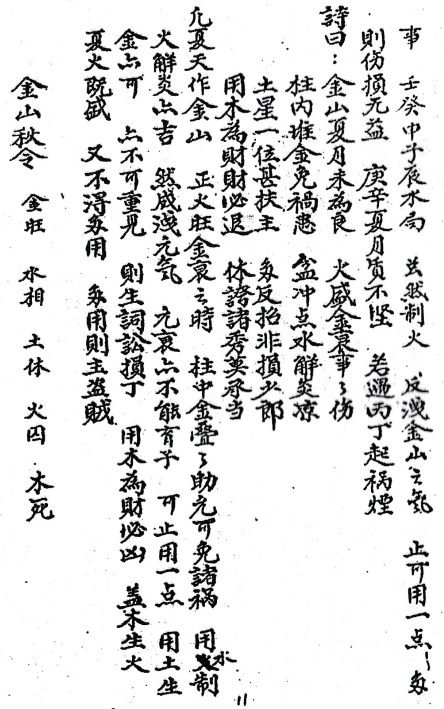 事 壬癸申子辰水局 玆然制火 反洩金山之氣 止可用一点〻多
則伤損无益 庚辛夏月质不坚 若遇丙丁起祸煙
詩曰：金山夏月未為良 火盛金衰事〻伤
柱内堆金免禍患 盆冲点水解炎凉
土星一位甚扶主 多反招非損少郎
用木為財財必退 休誇諸秀莫承当
凢夏天作金山 正火旺金衰之時 柱中金疊〻助元可免諸禍 用水制
火解炎亦吉 然感洩元氣 元衰亦不能育子 可止用一点 用土生
金亦可 亦不可重見 則生詞訟損丁 用木為財必凶 盖木生火
夏火既盛 又不得多用 多用則主盜贼
金山秋令 金旺 水相 土休 火囚 木死
11